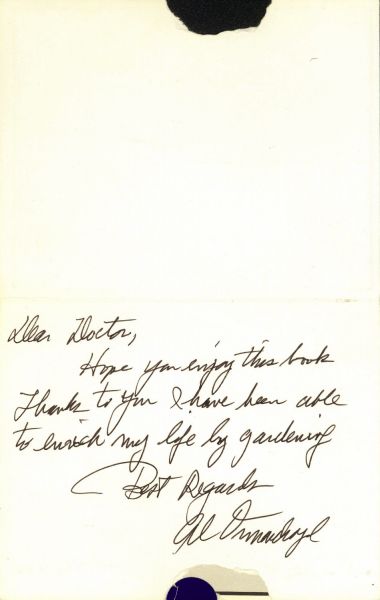 Dear Doctor,
Hope you enjoy this book
Thanks to you I have been able
to enrich my life by gardening
Best Regards
Al